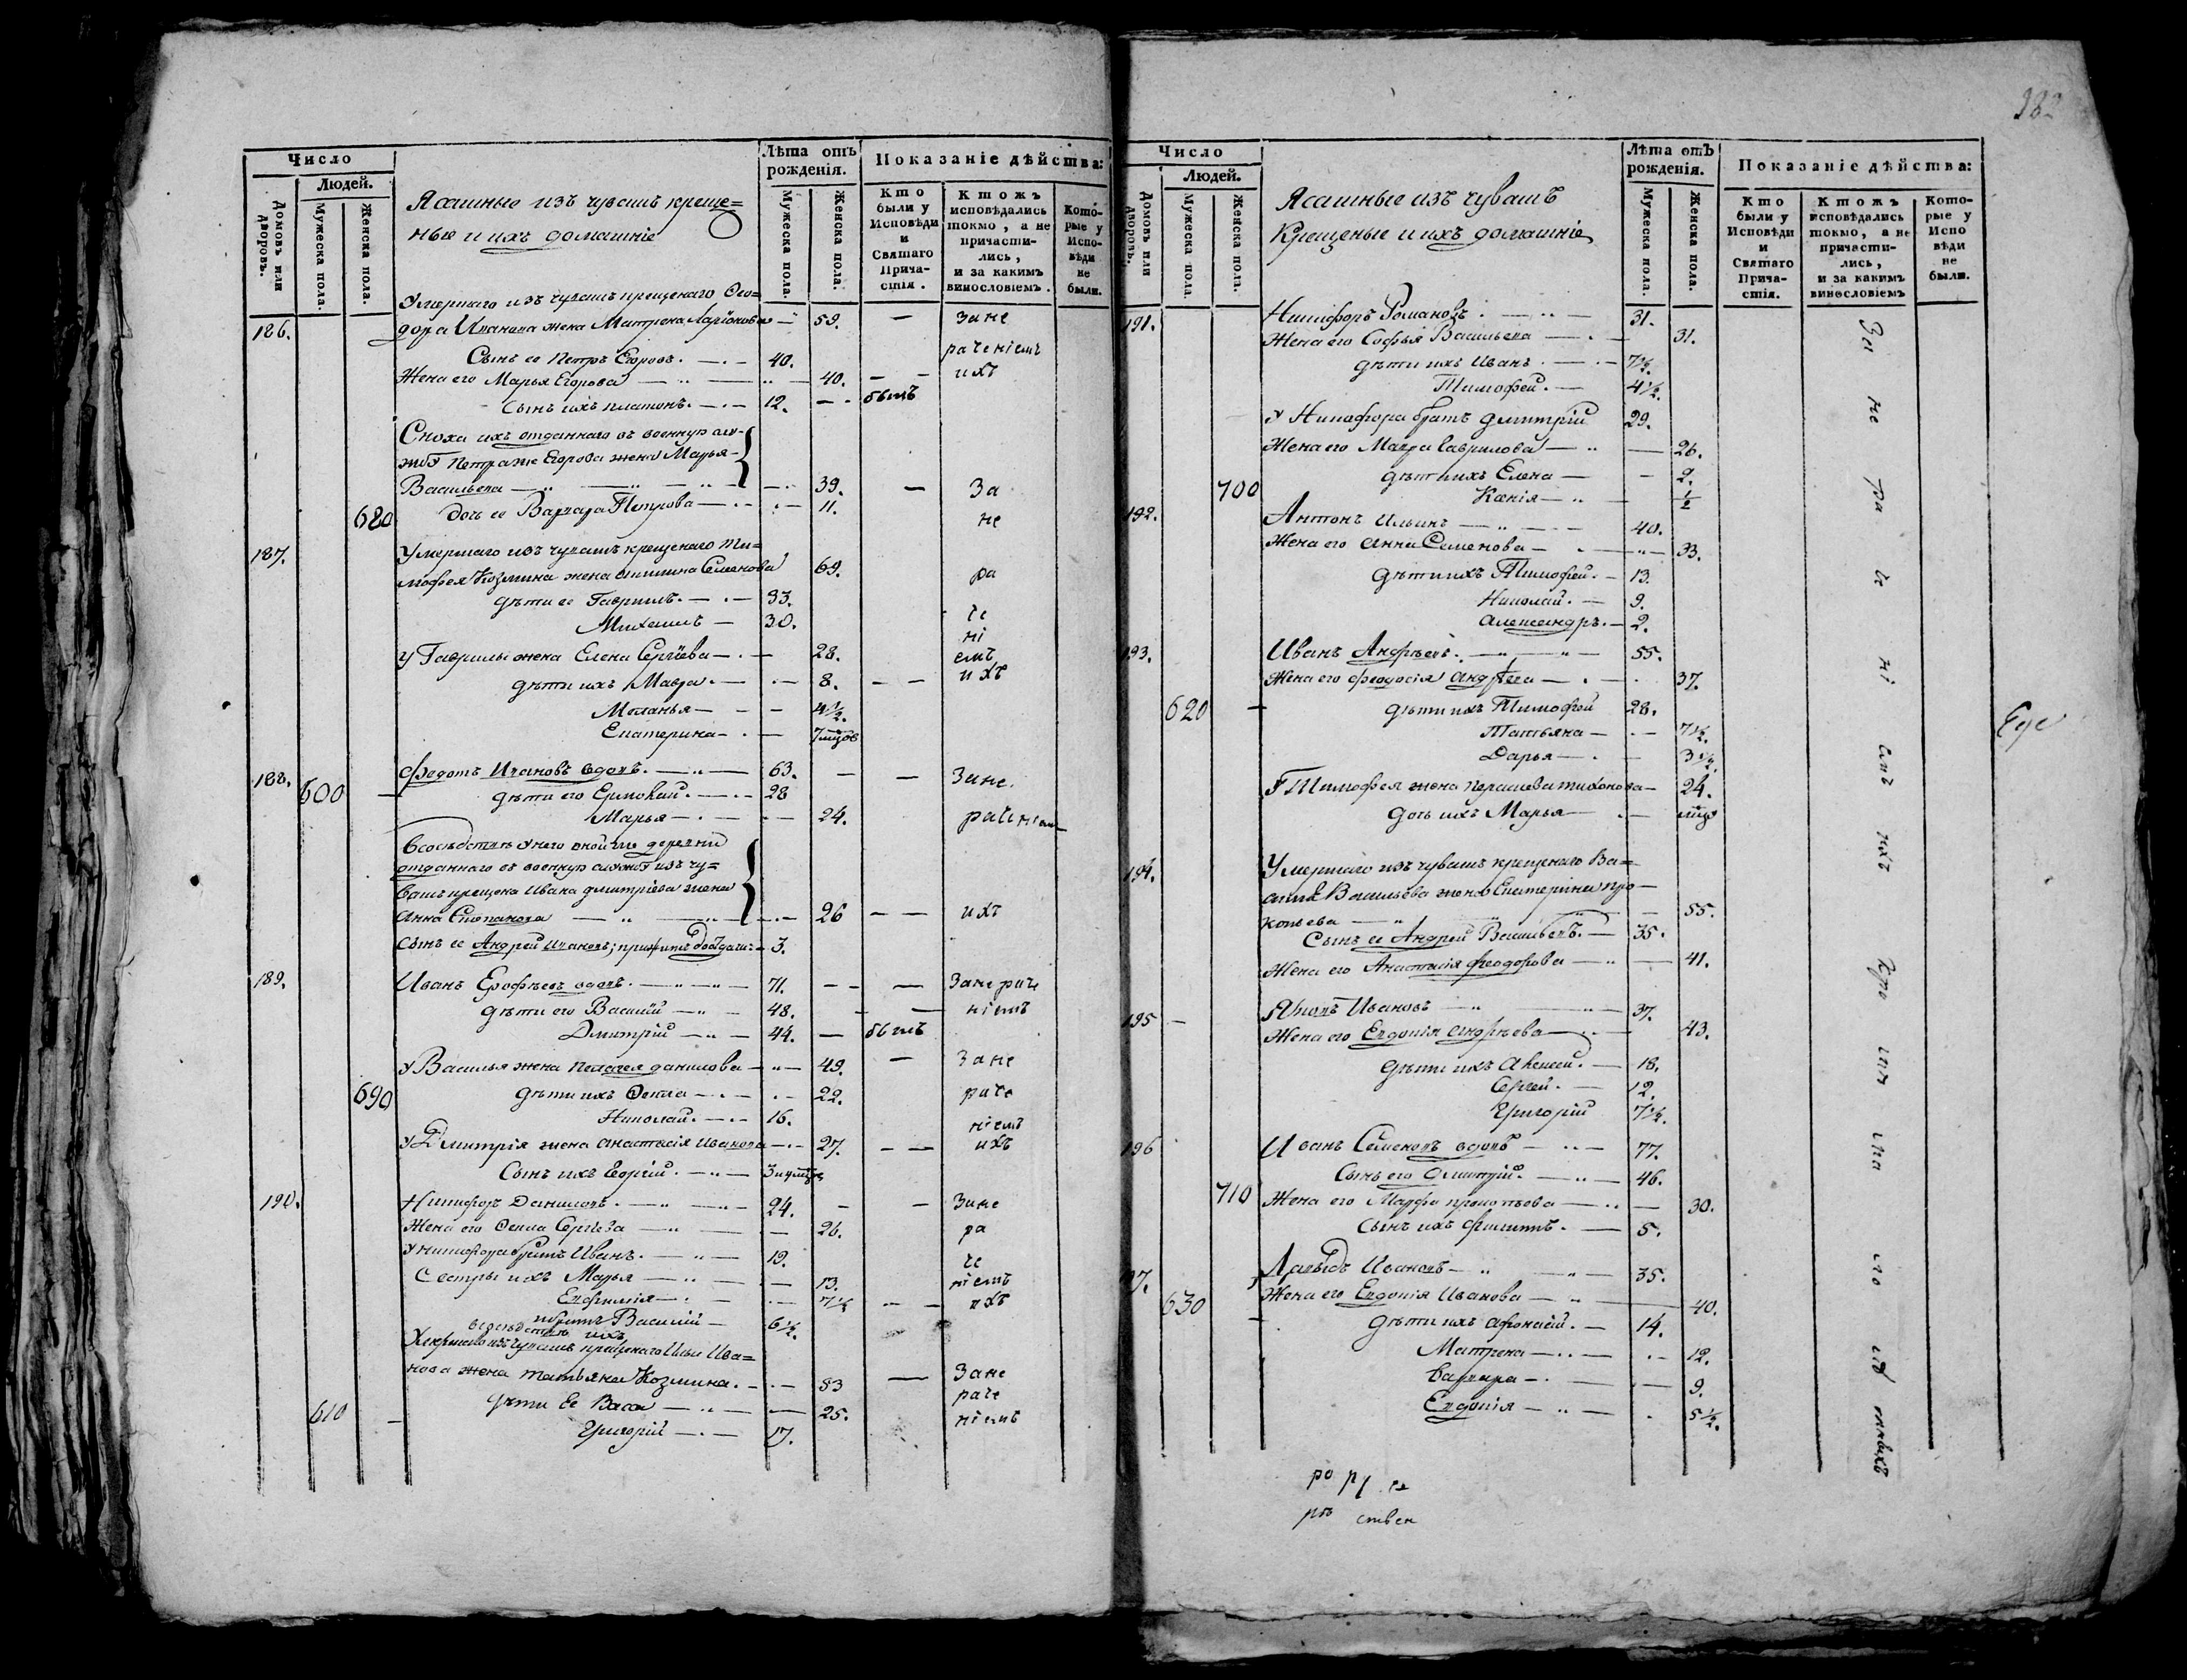 Число
Людей.
Домовъ или дворовъ.
Мужеска пола.
Женска пола.
Ясашные изъ чувашъ креще=
ные и ихъ домашніе
Лѣта отъ рожденія.
Мужеска пола.
Женска пола.
Показаніе дѣйства:
Кто были у Исповѣди и Святаго Причастія.
Ктожъ исповѣдались токмо, а не причастились, и за какимъ винословіемъ.
Которые у Исповѣди не были.
Умершаго изъ чувашъ крещенаго Ѳео=
186. дора Иванова жена Матрена Ларіонова 59. — Зане
Сынъ ее Петръ Егоровъ. 40. раченіемъ
Жена его Марья Егорова 40. ихъ
Сынъ ихъ Платонъ. 12. бытъ
Сноха ихъ отданнаго въ военную слу-
жбу Петра же Егорова жена Марья
Васильева 39. — За
680 дочь ее Варвара Петрова 11. не
187. Умершаго изъ чувашъ крещенаго Ти=
мофея Козмина жена Семенова 69. ра
дѣти ее Гаврилъ. 33. че
Михаилъ 30. ні
У Гаврилы жена Елена Сергіева 28. емъ
дѣти ихъ Мавра. 8. ихъ
Меланья 4½.
Екатерина 7 мцов
188. Федотъ Ивановъ вдовъ. 63. — — Зане
600 дѣти его Ермолай. 28
Марья 24. раченіем
В сосѣдствѣ у него оной же деревни
отданнаго въ военную службу изъ чу=
вашъ крещена Ивана Дмитріева жена
Анна Степанова 26 — — ихъ
Сынъ ее Андрей Ивановъ; 3.
189. Иванъ Ерофѣевъ вдовъ. 71. — — Занераче
дѣти его Василій 48. — — ніемъ
Дмитрій 44. — бытъ
У Василья жена Пелагея Данилова 49. — Зане
690 дѣти ихъ Ѳекла 22. раче
Николай. 16. ніемъ
У Дмитрія жена Анастасія Иванова 27. — — ихъ
Сынъ ихъ Георгій.
190. Никифоръ Даниловъ. 24. — — Зане
Жена его Ѳекла Сергѣева 26. ра
У Никифора братъ Иванъ. 19. че
Сестры ихъ Марья 13. ніемъ
Евфимія 7½ — — ихъ
Василій 6½.
Умершаго изъ чувашъ крещенаго Ильи Ива=
нова жена Татьяна Козмина. 53 — Зане
610 дѣти ее Васса 25. раче
Григорій 17. ніемъ
382
Число
Людей.
Домовъ или дворовъ.
Мужеска пола.
Женска пола.
Ясашные изъ чувашъ
Крещеные и ихъ домашніе
Лѣта отъ рожденія.
Мужеска пола.
Женска пола.
Показаніе дѣйства:
Кто были у Исповѣди и Святаго Причастія.
Ктожъ исповѣдались токмо, а не причастились, и за какимъ винословіемъ
Которые у Исповѣди не были.
191. Никифоръ Романовъ. 31.
Жена его Софья Васильева 31.
дѣти ихъ Иванъ. 7½.
Тимофей. 4½.
У Никифора братъ Дмитрій 29.
Жена его Мавра Гаврилова 26.
дѣти ихъ Елена 2.
700 Ксенія ½
192. Антонъ Ильинъ 40.
Жена его Анна Семенова 33.
дѣти ихъ Тимофей. 13.
Николай. 9.
Александръ. 2.
193. Иванъ Андрѣевъ. 55.
Жена его Феодосія Андрѣева 37.
620 дѣти ихъ Тимофей 28.
Татьяна 7½.
Дарья 3½.
У Тимофея жена Парасковья Тихонова 24.
дочь ихъ Марья
194. Умершаго изъ чувашъ крещенаго Ва=
силья Васильева жена Екатерина Про=
копьева 55.
Сынъ ее Андрей Васильевъ. 35.
Жена его Анастасія Феодорова 41.
195 Яковъ Ивановъ 37.
Жена его Евдокія Андрѣева 43.
дѣти ихъ Алексей. 18.
Сергей. 12.
Григорій 7½.
196 Иванъ Семеновъ вдовъ 77.
Сынъ его Дмитрій. 46.
710 Жена его Марфа Прокопьева 30.
Сынъ ихъ Филиппъ. 5.
197. Давыдъ Ивановъ 35.
Жена его Евдокія Иванова 40.
630 дѣти ихъ Афонасій. 14.
Матрена 12.
Варвара 9.
Евдокія 5½.
За не ра че ні емъ ихъ